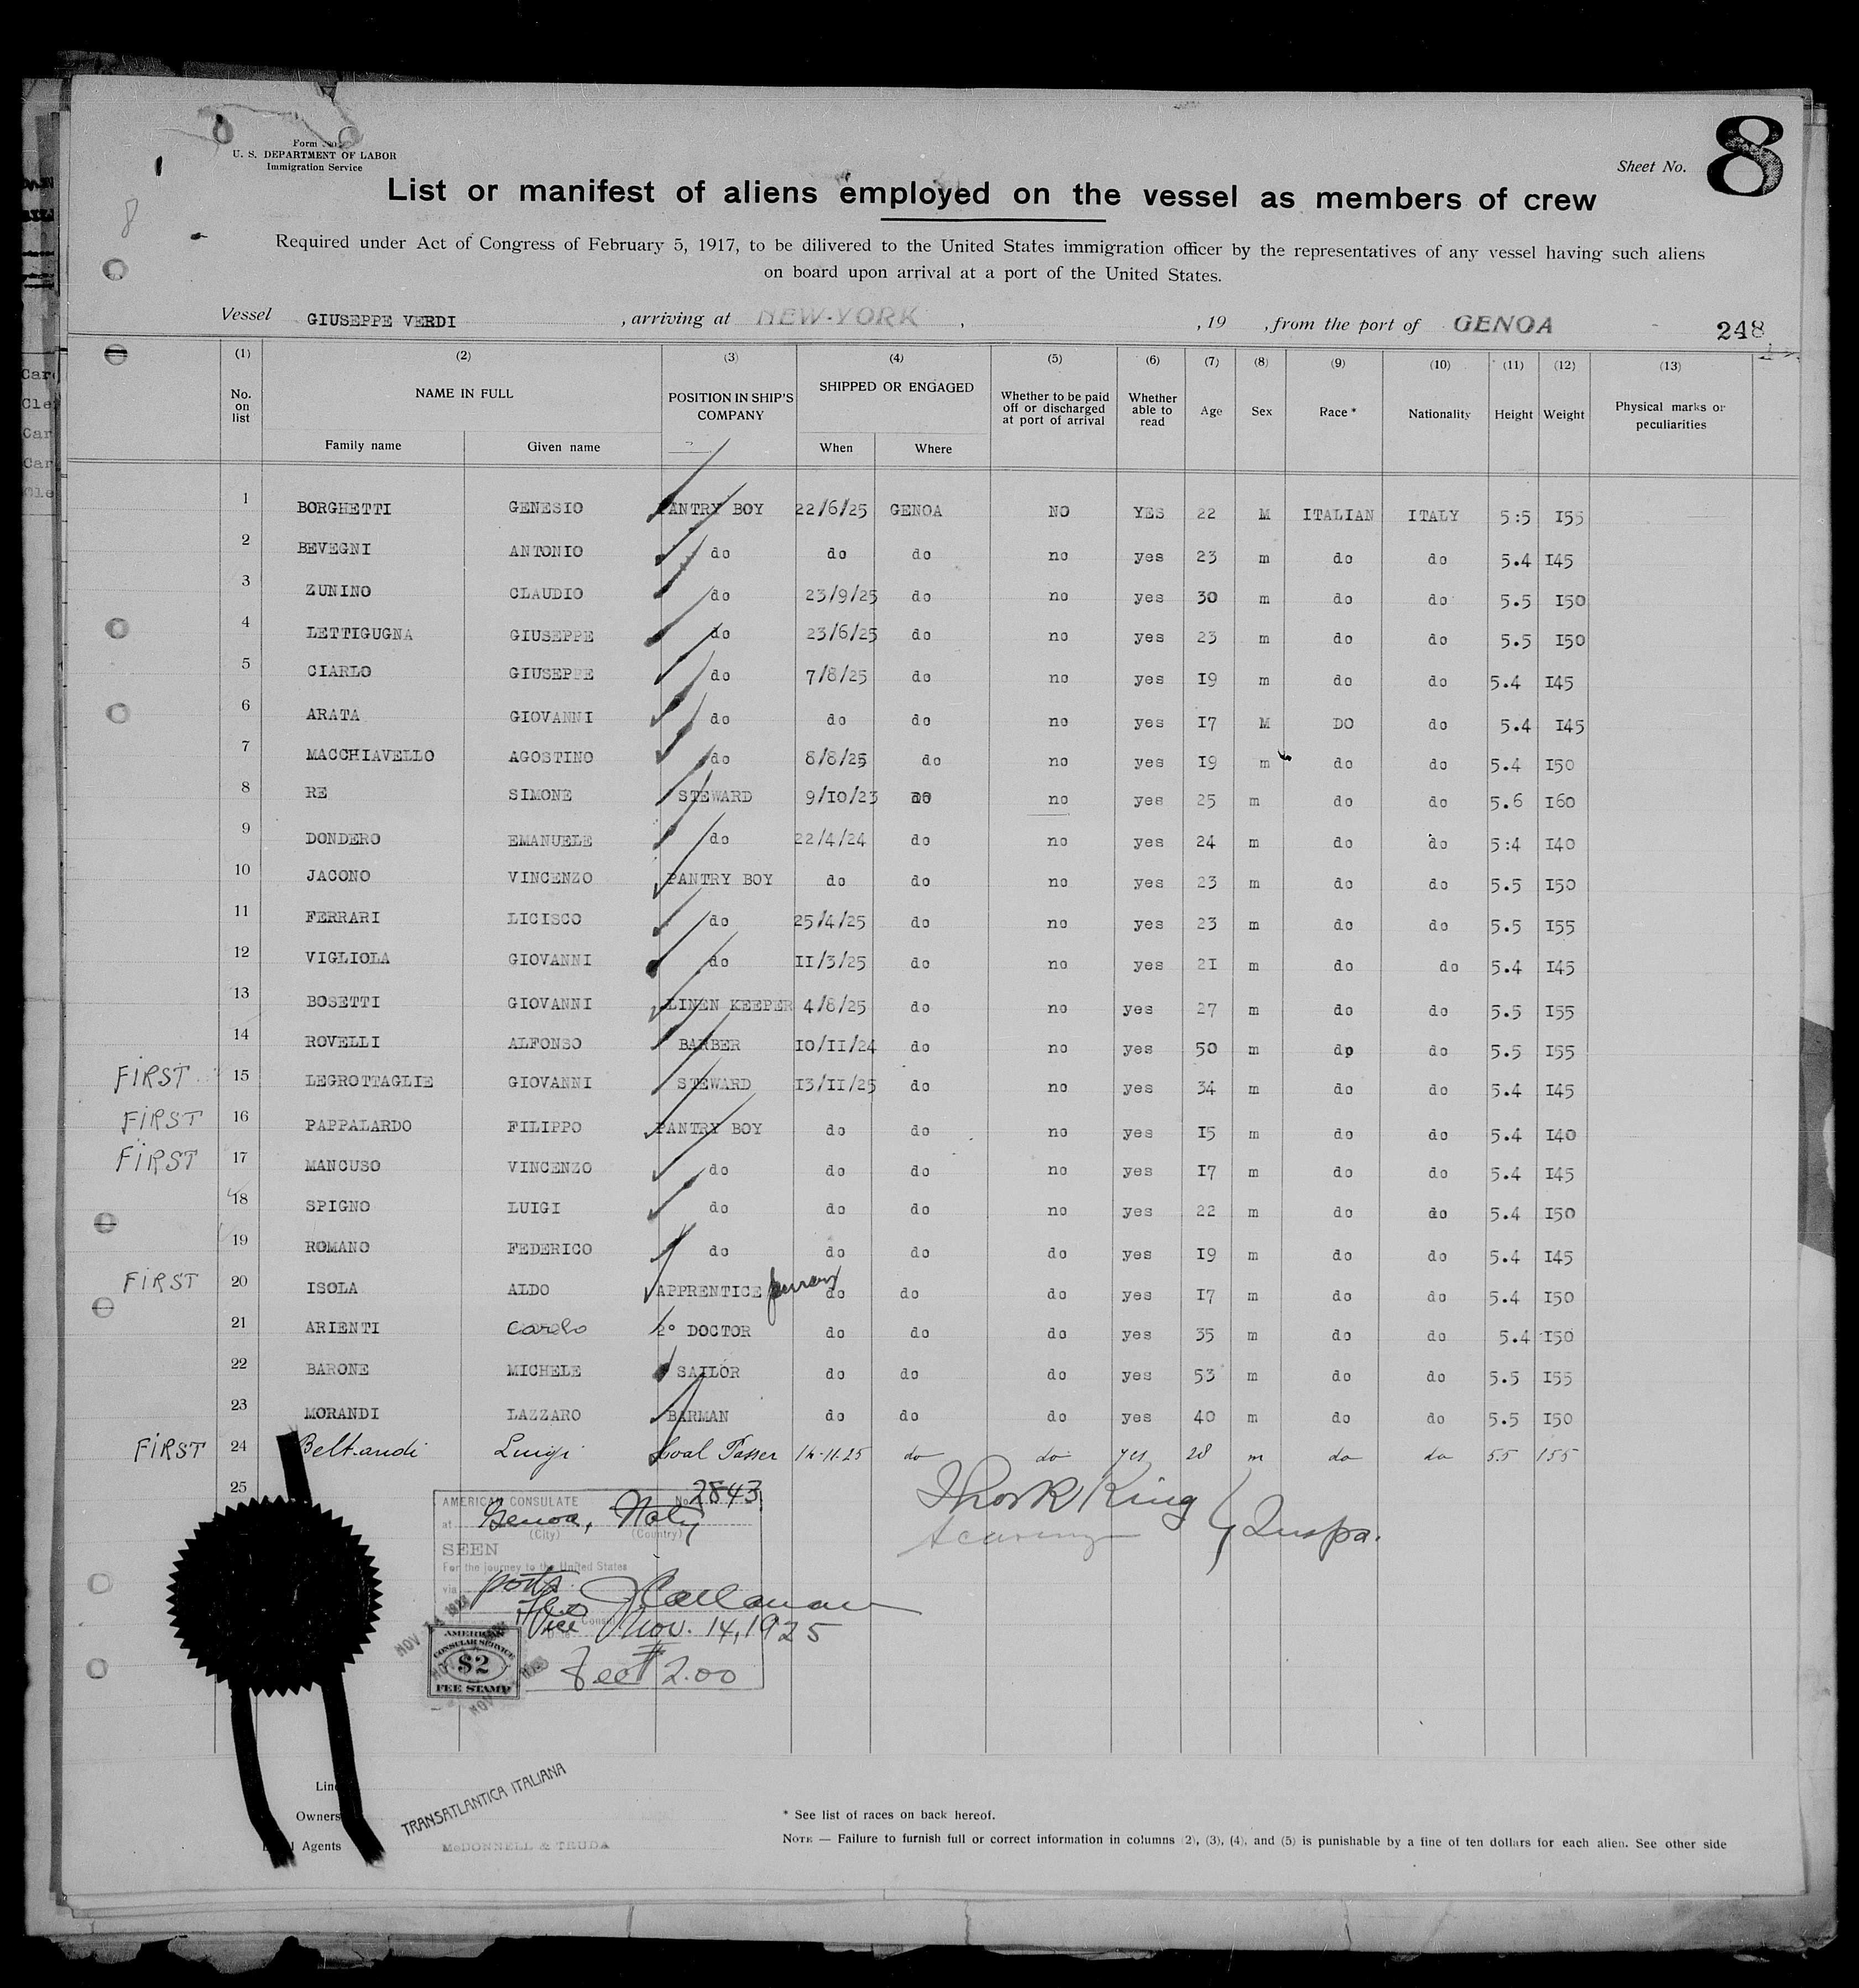 Form
U. S. DEPARTMENT OF LABOR
Immigration Service
Sheet No. 8
8
List or manifest of aliens employed on the vessel as members of crew
Required under Act of Congress of February 5, 1917, to be dilivered to the United States immigration officer by the representatives of any vessel having such aliens
on board upon arrival at a port of the United States.
Vessel GIUSEPPE VERDI , arriving at NEW-YORK , , 19 , from the port of GENOA 248
(1) (2) (3) (4) (5) (6) (7) (8) (9) (10) (11) (12) (13)
No. on list NAME IN FULL Family name Given name POSITION IN SHIP'S COMPANY SHIPPED OR ENGAGED When Where Whether to be paid off or discharged at port of arrival Whether able to read Age Sex Race * Nationality Height Weight Physical marks or peculiarities
1 BORGHETTI GENESIO PANTRY BOY 22/6/25 GENOA NO YES 22 M ITALIAN ITALY 5:5 155
2 BEVEGNI ANTONIO do do do no yes 23 m do do 5.4 145
3 ZUNINO CLAUDIO do 23/9/25 do no yes 30 m do do 5.5 150
4 LETTIGUGNA GIUSEPPE do 23/6/25 do no yes 23 m do do 5.5 150
5 CIARLO GIUSEPPE do 7/8/25 do no yes 19 m do do 5.4 145
6 ARATA GIOVANNI do do do no yes 17 M DO do 5.4 145
7 MACCHIAVELLO AGOSTINO do 8/8/25 do no yes 19 m do do 5.4 150
8 RE SIMONE STEWARD 9/10/23 do no yes 25 m do do 5.6 160
9 DONDERO EMANUELE do 22/4/24 do no yes 24 m do do 5:4 140
10 JACONO VINCENZO PANTRY BOY do do no yes 23 m do do 5.5 150
11 FERRARI LICISCO do 25/4/25 do no yes 23 m do do 5.5 155
12 VIGLIOLA GIOVANNI do 11/3/25 do no yes 21 m do do 5.4 145
13 BOSETTI GIOVANNI LINEN KEEPER 4/8/25 do no yes 27 m do do 5.5 155
14 ROVELLI ALFONSO BARBER 10/11/24 do no yes 50 m dp do 5.5 155
FIRST 15 LEGROTTAGLIE GIOVANNI STEWARD 13/11/25 do no yes 34 m do do 5.4 145
FIRST 16 PAPPALARDO FILIPPO PANTRY BOY do do no yes 15 m do do 5.4 140
FIRST 17 MANCUSO VINCENZO do do do no yes 17 m do do 5.4 145
18 SPIGNO LUIGI do do do no yes 22 m do do 5.4 150
19 ROMANO FEDERICO do do do do yes 19 m do do 5.4 145
FIRST 20 ISOLA ALDO APPRENTICE do do do yes 17 m do do 5.4 150
21 ARIENTI Carlo 2° DOCTOR do do do yes 35 m do do 5.4 150
22 BARONE MICHELE SAILOR do do do yes 53 m do do 5.5 155
23 MORANDI LAZZARO BARMAN do do do yes 40 m do do 5.5 150
FIRST 24 Beltrandi Luigi Coal Passer 14-11.25 do do yes 28 m do do 5.5 155
25
AMERICAN CONSULATE No. 2843
at Genoa, Italy
(City) (Country)
SEEN
For the journey to the United States
via ports
J Callanan
Vice Consul
Nov. 14, 1925
Fee $ 2.00
AMERICAN
CONSULAR SERVICE
$2
FEE STAMP
NOV 14 1925
King
Inspr.
Line
Owners TRANSATLANTICA ITALIANA
Agents McDONNELL & TRUDA
* See list of races on back hereof.
NOTE — Failure to furnish full or correct information in columns (2), (3), (4), and (5) is punishable by a fine of ten dollars for each alien. See other side